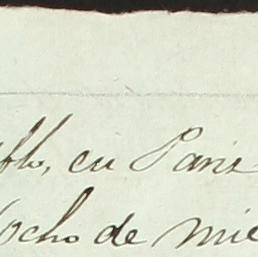 en Paris
ocho de mie